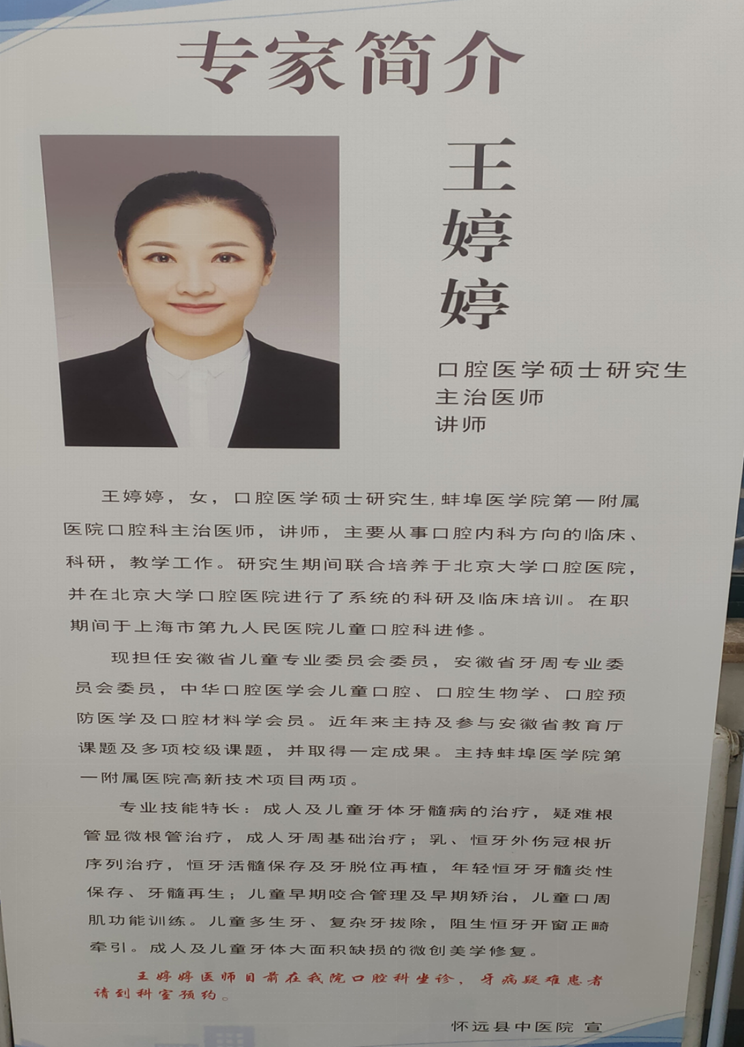 专家简介
王婷婷
口腔医学硕士研究生
主治医师
讲师
王婷婷，女，口腔医学硕士研究生,蚌埠医学院第一附属
医院口腔科主治医师，讲师，主要从事口腔内科方向的临床、
科研，教学工作。研究生期间联合培养于北京大学口腔医院，
并在北京大学口腔医院进行了系统的科研及临床培训。在职
期间于上海市第九人民医院儿童口腔科进修。
现担任安徽省儿童专业委员会委员，安徽省牙周专业委
员会委员，中华口腔医学会儿童口腔、口腔生物学、口腔预
防医学及口腔材料学会员。近年来主持及参与安徽省教育厅
课题及多项校级课题，并取得一定成果。主持蚌埠医学院第
一附属医院高新技术项目两项。
专业技能特长：成人及儿童牙体牙髓病的治疗，疑难根
管显微根管治疗，成人牙周基础治疗；乳、恒牙外伤冠根折
序列治疗，恒牙活髓保存及牙脱位再植，年轻恒牙牙髓炎性
保存、牙髓再生；儿童早期咬合管理及早期矫治，儿童口周
肌功能训练。儿童多生牙、复杂牙拔除，阻生恒牙开窗正畸
牵引。成人及儿童牙体大面积缺损的微创美学修复。
王婷婷医师目前在我院口腔科坐诊，牙病疑难患者
请到科室预约。
怀远县中医院 宣